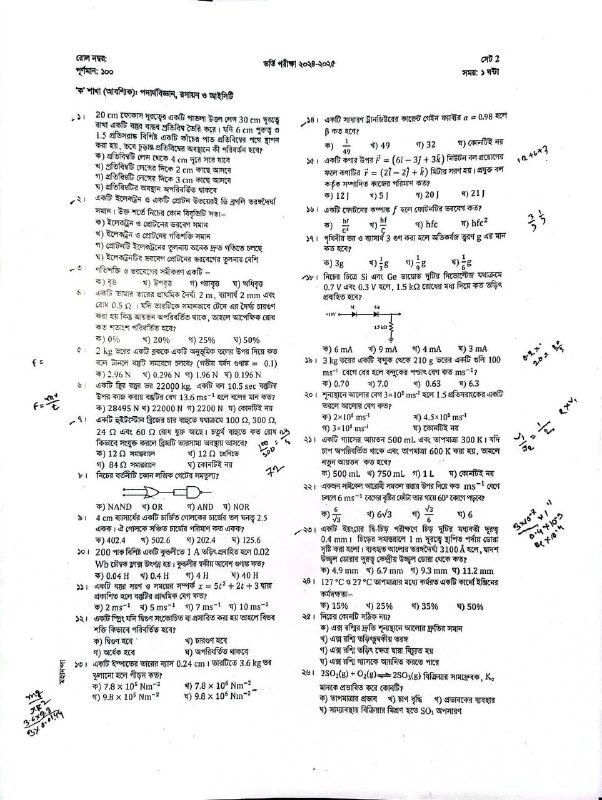 রোল নম্বর:
পূর্ণমান: ১০০
ভর্তি পরীক্ষা ২০২৪-২০২৫
সেট 2
সময়: ১ ঘন্টা
'ক' শাখা (আবশ্যিক): পদার্থবিজ্ঞান, রসায়ন ও আইসিটি
১। 20 cm ফোকাস দূরত্বের একটি পাতলা উত্তল লেন্স 30 cm দূরত্বে
রাখা একটি বস্তুর বাস্তব প্রতিবিম্ব তৈরি করে। যদি 6 cm পুরুত্ব ও
1.5 প্রতিসরাঙ্ক বিশিষ্ট একটি কাঁচের পাত প্রতিবিম্বের পথে স্থাপন
করা হয়, তবে চূড়ান্ত প্রতিবিম্বের অবস্থানে কী পরিবর্তন হবে?
ক) প্রতিবিম্বটি লেন্স থেকে 4 cm দূরে সরে যাবে
খ) প্রতিবিম্বটি লেন্সের দিকে 2 cm কাছে আসবে
গ) প্রতিবিম্বটি লেন্সের দিকে 3 cm কাছে আসবে
ঘ) প্রতিবিম্বটির অবস্থান অপরিবর্তিত থাকবে
২। একটি ইলেকট্রন ও একটি প্রোটন উভয়েরই ডি ব্রগলি তরঙ্গদৈর্ঘ্য
সমান। উক্ত শর্তে নিচের কোন বিবৃতিটি সত্য–
ক) ইলেকট্রন ও প্রোটনের ভরবেগ সমান
খ) ইলেকট্রন ও প্রোটনের গতিশক্তি সমান
গ) প্রোটনটি ইলেকট্রনের তুলনায় অনেক দ্রুত গতিতে চলছে
ঘ) ইলেকট্রনটির ভরবেগ প্রোটনের ভরবেগের তুলনায় বেশি
৩। গতিশক্তি ও ভরবেগের সমীকরণ একটি –
ক) বৃত্ত খ) উপবৃত্ত গ) পরাবৃত্ত ঘ) অধিবৃত্ত
৪। একটি তামার তারের প্রাথমিক দৈর্ঘ্য 2 m, ব্যাসার্ধ 2 mm এবং
রোধ 0.5 Ω । যদি তারটিকে সমানভাবে টেনে এর দৈর্ঘ্য চারগুণ
করা হয় কিন্তু আয়তন অপরিবর্তিত থাকে, তাহলে আপেক্ষিক রোধ
কত শতাংশ পরিবর্তিত হবে?
ক) 0% খ) 20% গ) 25% ঘ) 50%
৫। 2 kg ভরের একটি ব্লককে একটি অনুভূমিক তলের উপর দিয়ে কত
বলে টানলে বস্তুটি সমবেগে চলবে? (গতীয় ঘর্ষণ গুণাঙ্ক = 0.1)
ক) 2.96 N খ) 0.296 N গ) 1.96 N ঘ) 0.196 N
৬। একটি স্থির বস্তুর ভর 22000 kg. একটি বল 10.5 sec বস্তুটির
উপর কাজ করায় বস্তুটির বেগ 13.6 ms⁻¹ হলে বলের মান কত?
ক) 28495 N খ) 22000 N গ) 2200 N ঘ) কোনটিই নয়
৭। একটি হুইটস্টোন ব্রিজের চার বাহুতে যথাক্রমে 100 Ω, 300 Ω,
24 Ω এবং 60 Ω রোধ যুক্ত আছে। চতুর্থ বাহুতে কত রোধ
কিভাবে সংযুক্ত করলে ব্রিজটি ভারসাম্য অবস্থায় আসবে?
ক) 12 Ω সমান্তরালে খ) 12 Ω শ্রেণিতে
গ) 84 Ω সমান্তরালে ঘ) কোনটিই নয়
৮। নিচের বর্তনীটি কোন লজিক গেটের সমতুল্য?
ক) NAND খ) OR গ) AND ঘ) NOR
৯। 4 cm ব্যাসার্ধের একটি চার্জিত গোলকের চার্জের তল ঘনত্ব 2.5
একক। ঐ গোলকে সঞ্চিত চার্জের পরিমাণ কত একক?
ক) 402.4 খ) 502.6 গ) 202.4 ঘ) 125.6
১০। 200 পাক বিশিষ্ট একটি কুণ্ডলীতে 1 A তড়িৎ প্রবাহিত হলে 0.02
Wb চৌম্বক ফ্লাক্স উৎপন্ন হয়। কুণ্ডলীর স্বকীয় আবেশ গুণাঙ্ক কত?
ক) 0.04 H খ) 0.4 H গ) 4 H ঘ) 40 H
১১। একটি বস্তুর সরণ ও সময়ের সম্পর্ক x = 5t² + 2t + 3 দ্বারা
প্রকাশিত হলে বস্তুটির প্রাথমিক বেগ কত?
ক) 2 ms⁻¹ খ) 5 ms⁻¹ গ) 7 ms⁻¹ ঘ) 10 ms⁻¹
১২। একটি স্প্রিং যদি দ্বিগুণ সংকোচিত বা প্রসারিত করা হয় তাহলে বিভব
শক্তি কিভাবে পরিবর্তিত হবে?
ক) দ্বিগুণ হবে খ) চারগুণ হবে
গ) অর্ধেক হবে ঘ) অপরিবর্তিত থাকবে
১৩। একটি ইস্পাতের তারের ব্যাস 0.24 cm। তারটিতে 3.6 kg ভর
ঝুলানো হলে পীড়ন কত?
ক) 7.8 × 10⁵ Nm⁻² খ) 7.8 × 10⁶ Nm⁻²
গ) 9.8 × 10⁵ Nm⁻² ঘ) 9.8 × 10⁶ Nm⁻²
১৪। একটি সাধারণ ট্রানজিস্টরের কারেন্ট গেইন ফ্যাক্টর α = 0.98 হলে
β কত হবে?
ক) 1/49 খ) 49 গ) 32 ঘ) কোনটিই নয়
১৫। একটি কণার উপর F⃗ = (6î − 3ĵ + 3k̂) নিউটন বল প্রয়োগের
ফলে কণাটির r⃗ = (2î − 2ĵ + k̂) মিটার সরণ হয়। প্রযুক্ত বল
কর্তৃক সম্পাদিত কাজের পরিমাণ কত?
ক) 12 J খ) 5 J গ) 20 J ঘ) 21 J
১৬। একটি ফোটনের কম্পাঙ্ক f হলে ফোটনটির ভরবেগ কত?
ক) hf/c² খ) hf/c গ) hfc ঘ) hfc²
১৭। পৃথিবীর ভর ও ব্যাসার্ধ 3 গুণ করা হলে অভিকর্ষজ ত্বরণ g এর মান
কত হবে?
ক) 3g খ) 1/3 g গ) 1/9 g ঘ) 1/6 g
১৮। নিচের চিত্রে Si এবং Ge ডায়োড দুটির বিভোল্টেজ যথাক্রমে
0.7 V এবং 0.3 V হলে, 1.5 kΩ রোধের মধ্য দিয়ে কত তড়িৎ
প্রবাহিত হবে?
Si Ge
1.5 kΩ
ক) 6 mA খ) 9 mA গ) 4 mA ঘ) 3 mA
১৯। 3 kg ভরের একটি বন্দুক থেকে 210 g ভরের একটি গুলি 100
ms⁻¹ বেগে বের হলে বন্দুকের পশ্চাৎ বেগ কত ms⁻¹?
ক) 0.70 খ) 7.0 গ) 0.63 ঘ) 6.3
২০। শূন্যস্থানে আলোর বেগ 3×10⁸ ms⁻¹ হলে 1.5 প্রতিসরাংকের একটি
তরলে আলোর বেগ কত?
ক) 2×10⁸ ms⁻¹ খ) 4.5×10⁸ ms⁻¹
গ) 3×10⁸ ms⁻¹ ঘ) কোনটিই নয়
২১। একটি গ্যাসের আয়তন 500 mL এবং তাপমাত্রা 300 K। যদি
চাপ অপরিবর্তিত থাকে এবং তাপমাত্রা 600 K করা হয়, তাহলে
নতুন আয়তন কত হবে?
ক) 500 mL খ) 750 mL গ) 1 L ঘ) কোনটিই নয়
২২। একজন সাইকেল আরোহী সমতল রাস্তার উপর দিয়ে কত ms⁻¹ বেগে
চললে 6 ms⁻¹ বেগের বৃষ্টির ফোঁটা তার গায়ে 60° কোণে পড়বে?
ক) 6/√3 খ) 6√3 গ) √3/6 ঘ) 6
২৩। একটি ইয়ং-এর দ্বি-চিড় পরীক্ষণে চিড় দুটির মধ্যবর্তী দূরত্ব
0.4 mm। চিড়ের সমান্তরালে 1 m দূরত্বে স্থাপিত পর্দায় ডোরা
সৃষ্টি করা হলো। ব্যবহৃত আলোর তরঙ্গদৈর্ঘ্য 3100 Å হলে, দ্বাদশ
উজ্জ্বল ডোরার দূরত্ব কেন্দ্রীয় উজ্জ্বল ডোরা থেকে কত?
ক) 4.9 mm খ) 6.7 mm গ) 9.3 mm ঘ) 11.2 mm
২৪। 127 °C ও 27 °C তাপমাত্রার মধ্যে কর্মরত একটি কার্নো ইঞ্জিনের
কর্মদক্ষতা–
ক) 15% খ) 25% গ) 35% ঘ) 50%
২৫। নিচের কোনটি সঠিক নয়?
ক) এক্স রশ্মির দ্রুতি শূন্যস্থানে আলোর দ্রুতির সমান
খ) এক্স রশ্মি তড়িৎচুম্বকীয় তরঙ্গ
গ) এক্স রশ্মি তড়িৎ ক্ষেত্র দ্বারা বিচ্যুত হয়
ঘ) এক্স রশ্মি গ্যাসকে আয়নিত করতে পারে
২৬। 2SO₂(g) + O₂(g) ⇌ 2SO₃(g) বিক্রিয়ার সাম্যধ্রুবক, Kc
মানকে প্রভাবিত করে কোনটি?
ক) তাপমাত্রার প্রভাব খ) চাপ বৃদ্ধি গ) প্রভাবকের ব্যবহার
ঘ) সাম্যাবস্থায় বিক্রিয়ার মিশ্রণ হতে SO₃ অপসারণ
মহানন্দা